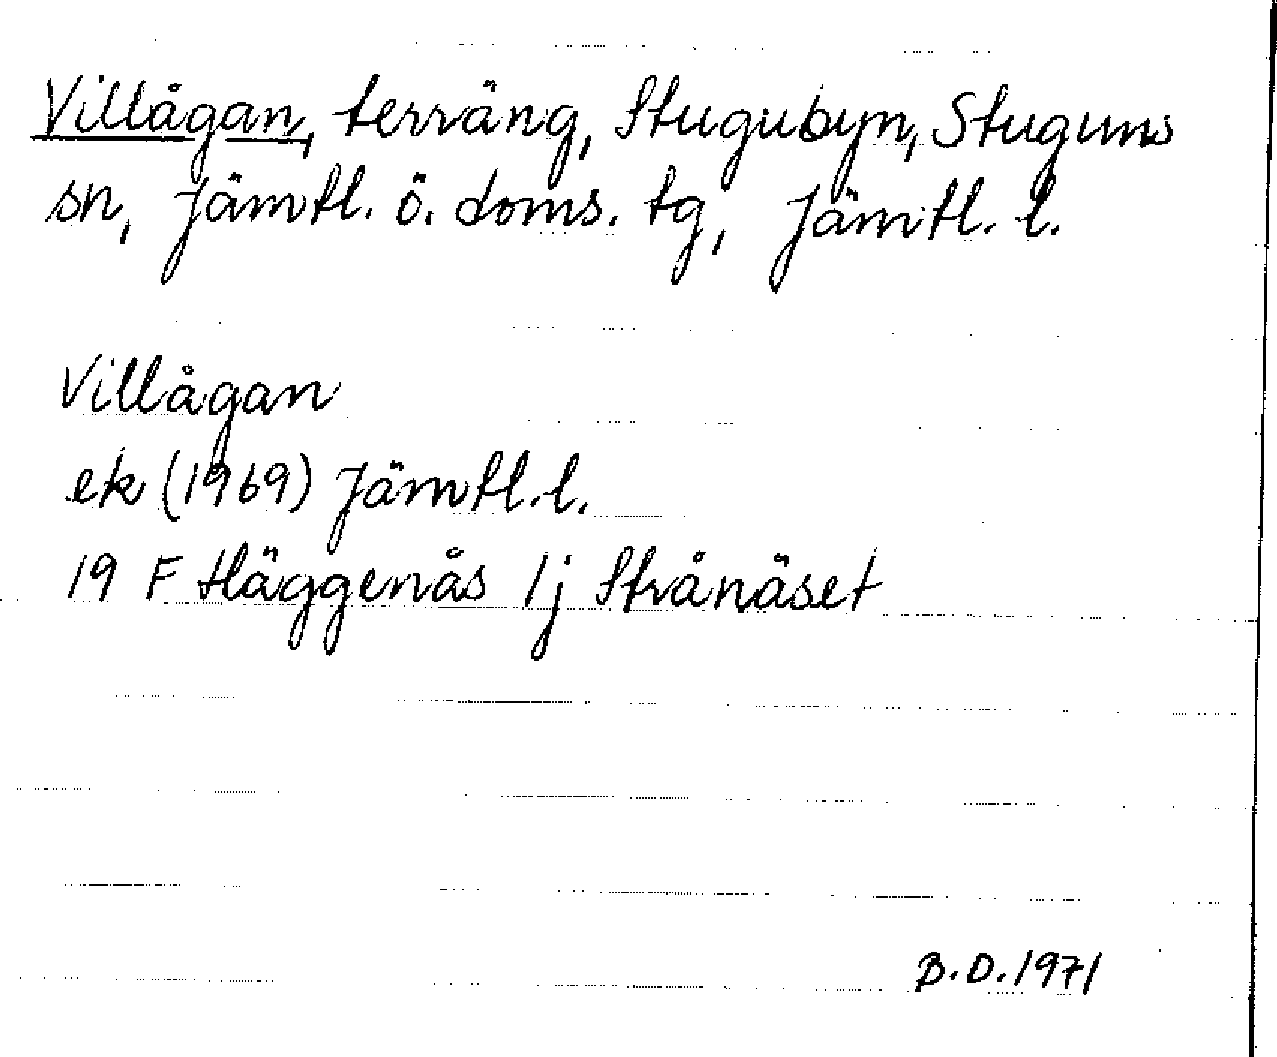 Villågan, terräng, Stugubyn, Stuguns
sn, Jämtl. ö. doms. tg, Jämtl. l.
Villågan
ek (1969) Jämtl. l.
19 F Häggenås 1j Strånäset
B.D. 1971